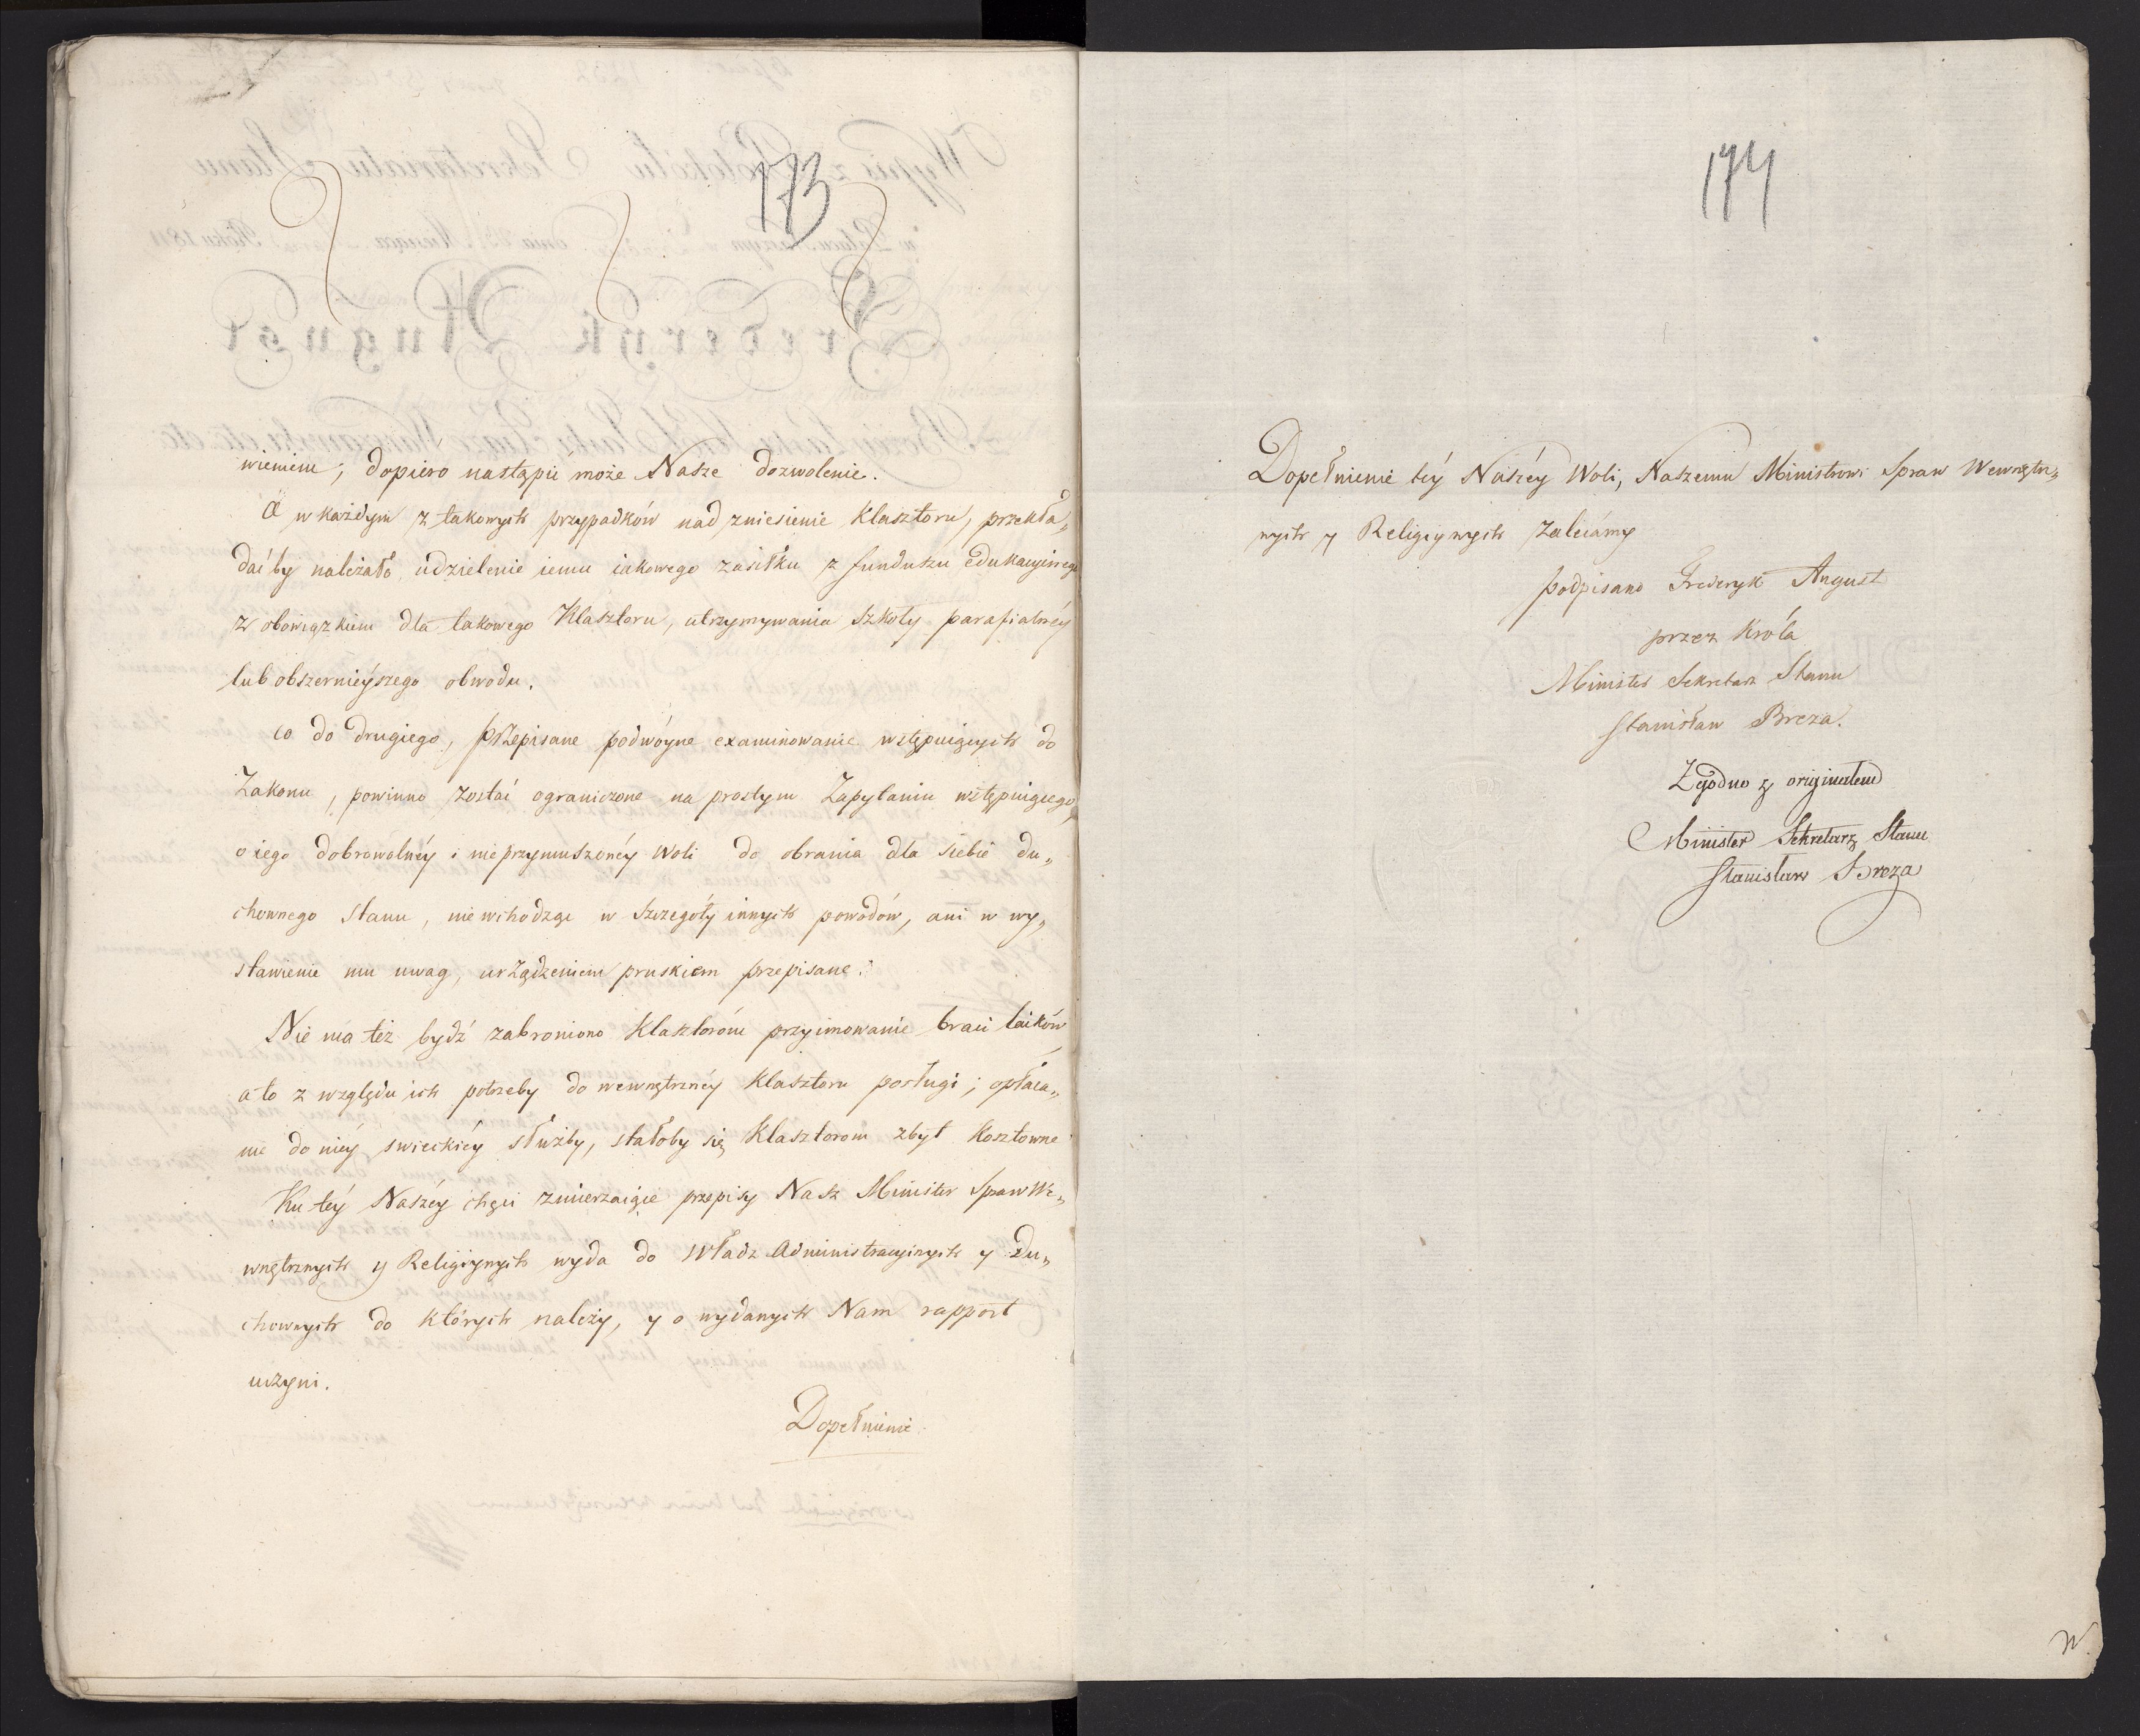 173
wieniem, dopiero nastąpić może Nasze dozwolenie.
A w każdym z takowych przypadków nad zniesienie Klasztoru, przekła„
daćby należało, udzielenie iemu iakowego zasiłku z funduszu edukacyinego
z obowiązkiem dla takowego Klasztoru, utrzymywania szkoły parafialnéy
lub obszernieyszego obwodu.
co do drugiego, przepisane podwóyne examinowanie wstępuiących do
Zakonu, powinno zostać ograniczone na prostym Zapytaniu wstępuiącego,
o iego dobrowolnéy i nieprzymuszonéy woli do obrania dla siebie du„
chownego stanu, nie wchodząc w szczegóły innych powodów, ani w wy„
stawienie mu uwag, urządzeniem pruskiem przepisane.
Nie ma też bydź zabroniono Klasztorom przyimowanie braci laików
a to z względu ich potrzeby do wewnętrznéy Klasztoru posługi; opłaca„
nie do niéy swieckiéy służby, stałoby się Klasztorom zbyt kosztowne
Ku téy Naszéy chęci zmierzaiące przepisy Nasz Minister Spraw We„
wnętrznych y Religiynych wyda do Władz Administracyinych y Du„
chownych do których należy, y o wydanych Nam rapport
uczyni.
Dopełnienie
174
Dopełnienie téy Naszéy Woli, Naszemu Ministrowi Spraw Wewnętrz„
nych y Religiynych zalecámy
podpisano Frederyk August
przez Króla
Minister Sekretarz Stanu
Stanisław Breza.
Zgodno z originałem
Minister Sekretarz Stanu
Stanisław Breza